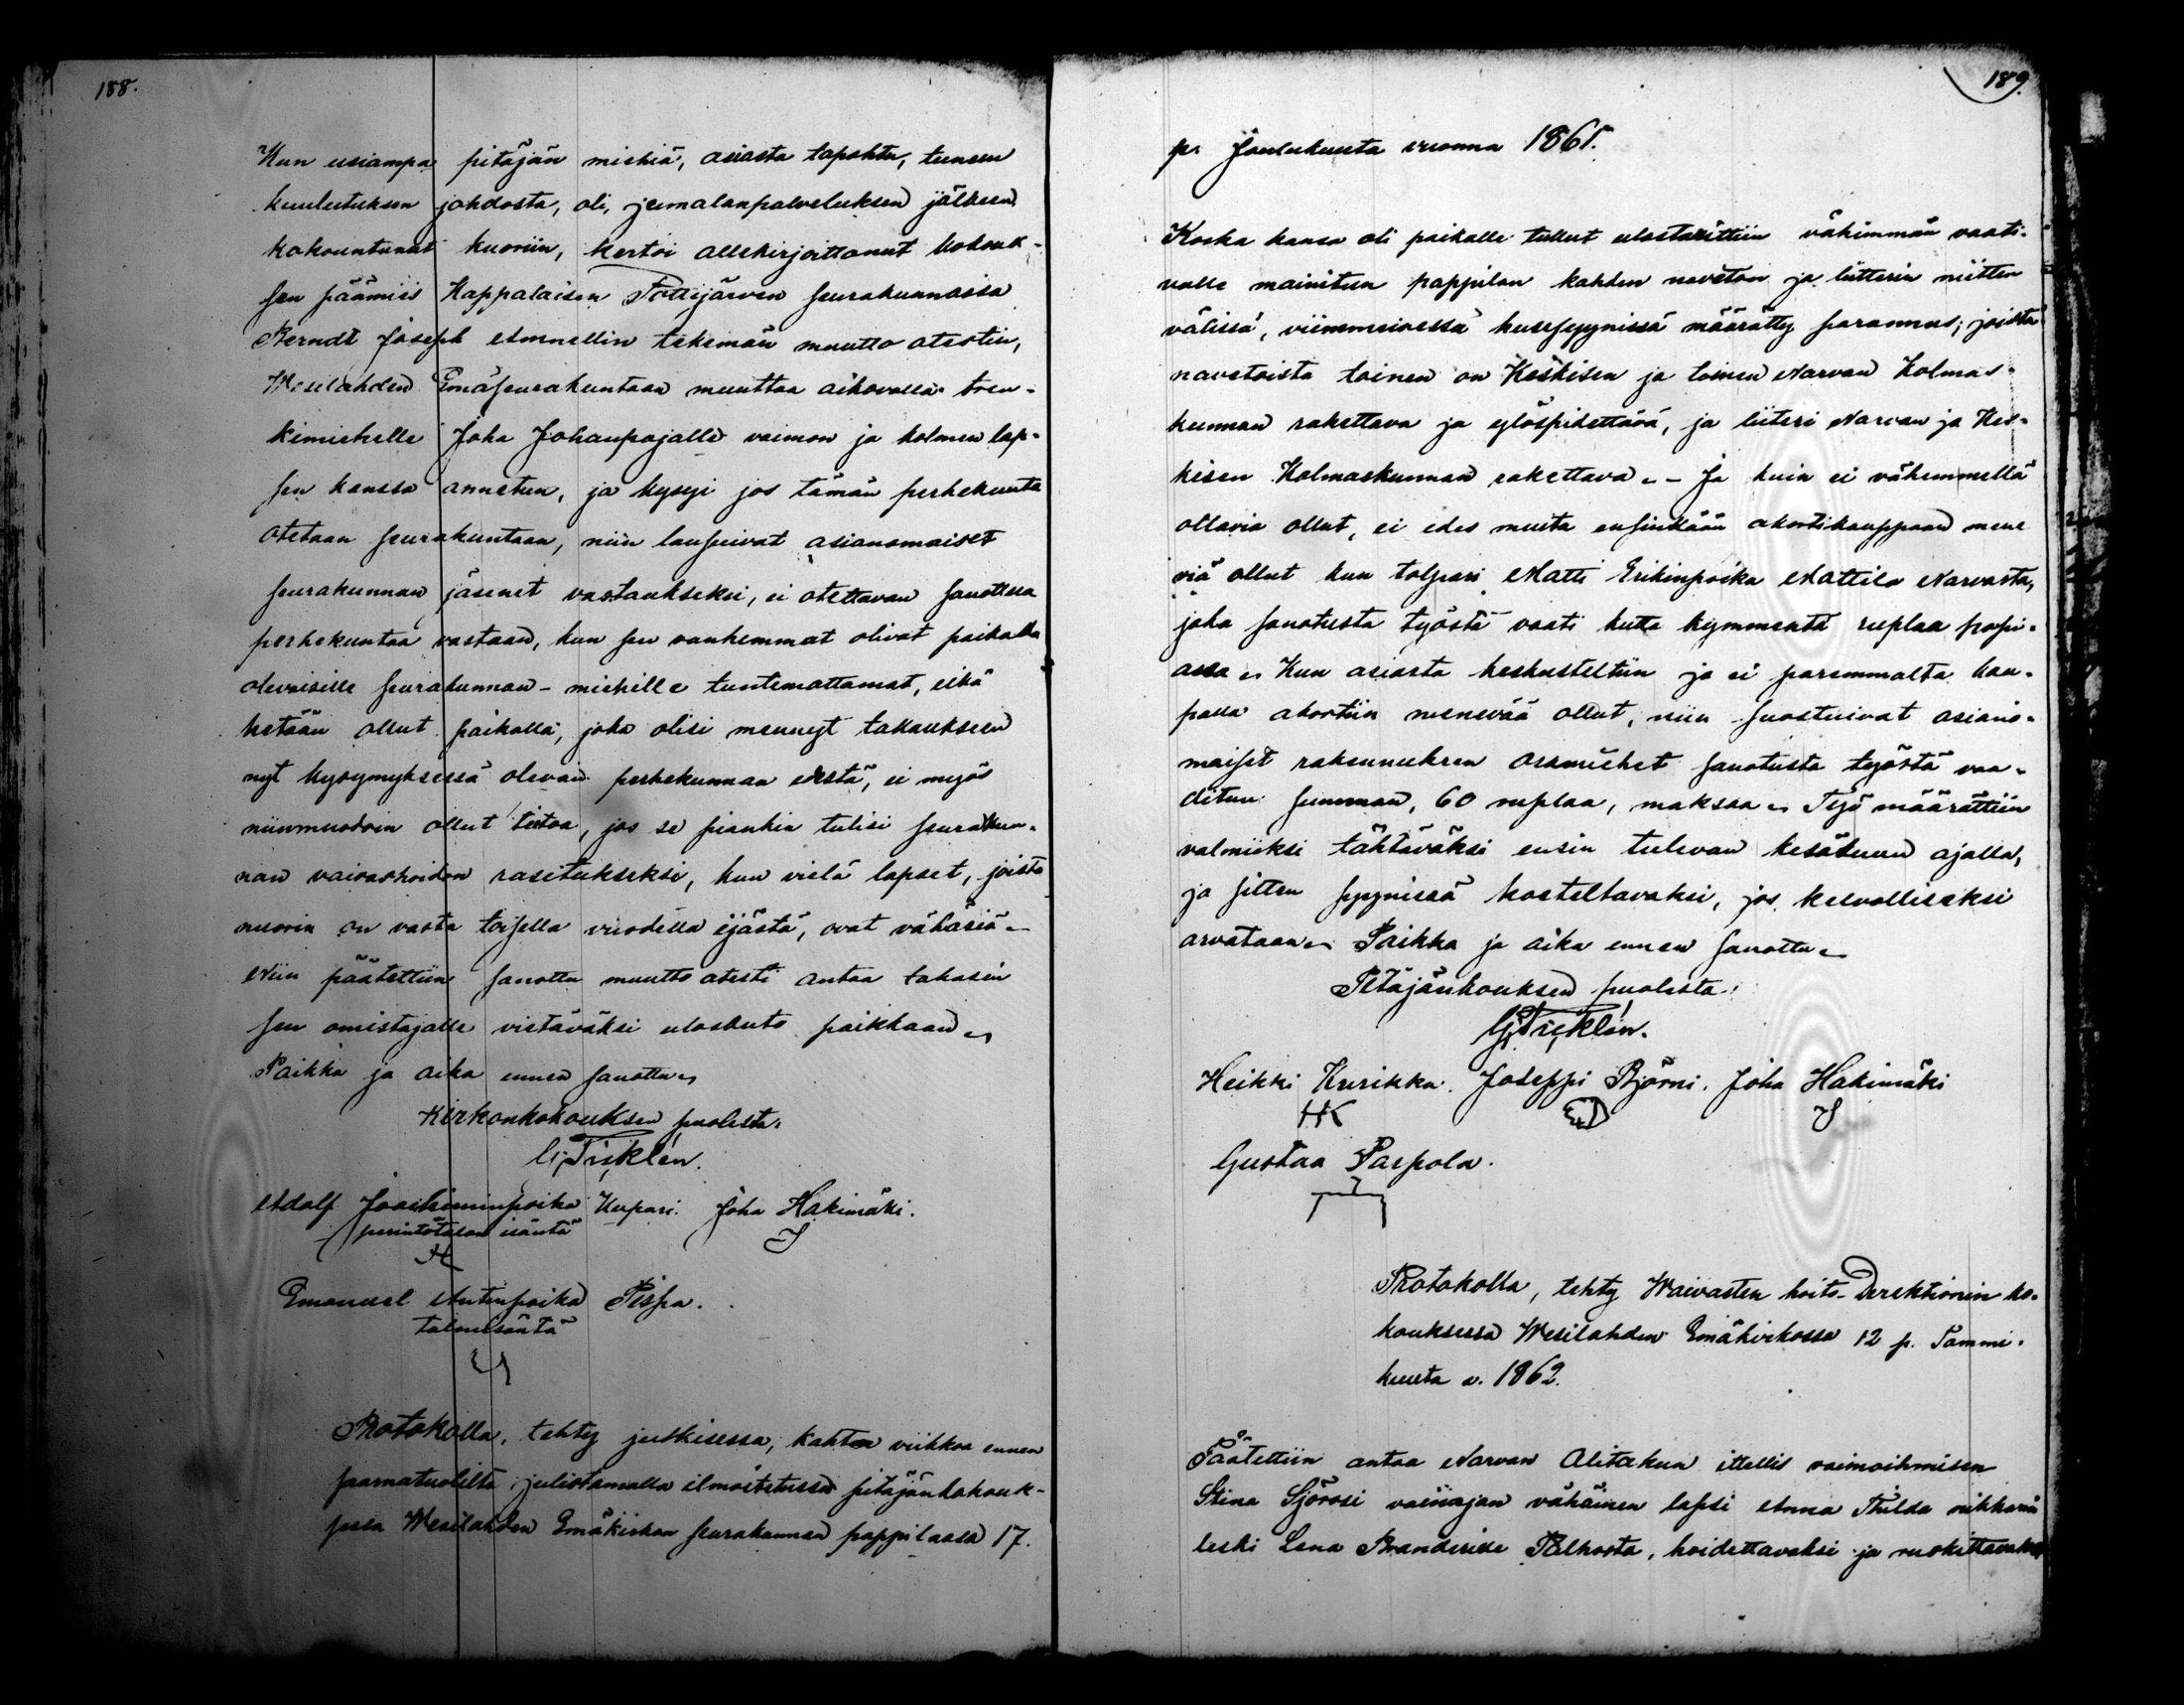 188.
Kun usiampa pitäjän miehiä, asiasta tapahtu, tunsen
kuulutuksen johdosta, oli, jumalanpalveluksen jälkeen
kokountunut kuoriin, kertoi allekirjoittanut kokouk-
sen päämies Kappalaisen Tottijärven seurakunnassa
Berndt Joseph Amnellin tekemän muutto atestin,
Wesilahden Emäseurakuntaan muuttaa aikovalla tren-
kimiehelle Joha Johanpajalle vaimon ja kolmen lap-
sen kanssa annetun, ja kysyi jos tämän perhekunta
otetaan seurakuntaan, niin lausuivat asianomaiset
seurakunnan jäsenet vastaukseksi, ei otettavan sanottua
perhekuntaa vastaan, kun sen vanhemmat olivat paikalla
olevaisille seurakunnan-miehille tuntemattamat, eikä
ketään ollut paikalla, joka olisi mennyt takaukseen
nyt kysymyksessä olevan perhekunnan edestä, ei myös
niinmuodoin ollut tietoa, jos se piankin tulisi seurakun-
nan vaivashoidon rasitukseksi, kun vielä lapset, joista
nuorin on vasta toisella vuodella ijästä, ovat vähäsiä.
Niin päätettiin sanottu muutto atesti antaa takasin
sen omistajalle vietäväksi ulosanto paikkaan.
Paikka ja aika ennen sanottu.
Kirkonkokouksen puolesta.
G. Ticklén.
Adolf Joachiminpoika Kupari. Joha Hakimäki.
perintötalon isäntä
Emanuel Antinpoika Pispa.
talonisäntä
Protokolla, tehty julkisessa, kahta viikkoa ennen
saarnatuolilta julistamalla ilmoitetussa pitäjänkokouk-
sessa Wesilahden Emäkirkon seurakunnan pappilassa 17.
189.
p. Joulukuuta vuonna 1861.
Koska kansa oli paikalle tullut ulostarittiin vähimmän vaati-
valle mainitun pappilan kahden navetan ja liiterin niitten
välissä, viimmeisessä husesyynissä määrätty parannus; joista
navetoista toinen on Keskisen ja toinen Narvan Kolmas-
kunnan rakettava ja ylöspidettävä, ja liiteri Narvan ja Kes-
kisen Kolmaskunnan rakettava. - Ja kuin ei vähemmellä
ottavia ollut, ei edes muita ensinkään akortikauppaan mene
viä ollut kun tolppari Matti Erikinpoika Mattila Narvasta,
joka sanotusta työstä vaati kutta kymmentä ruplaa hopi-
assa. Kun asiasta keskusteltiin ja ei paremmalta kau-
palla akortiin menevää ollut, niin suostuivat asiano-
maiset rakennuksen osamiehet sanotusta työstä vaa-
ditun summan, 60 ruplaa, maksaa. Työ määrättiin
valmiiksi tähtäväksi ensin tulevan kesäkuun ajalla,
ja sitten syynissä koeteltavaksi, jos kelvolliseksi
arvataan. Paikka ja aika ennen sanottu.
Pitäjänkouksen puolesta:
G. Ticklén.
Heikki Kurikka. Joseppi Björni. Joha Hakimäki
HK
Gustaa Parpola.
Protokolla, tehty Waivasten hoito-Derektionin ko-
kouksessa Wesilahden Emäkirkossa 12 p. Tammi-
kuuta v. 1862.
Päätettiin antaa Narvan Alitakun ittellis vaimoihmisen
Stina Sjörosi vainajan vähäinen lapsi Anna Thilda
leski Lena Palhosta, hoidettavaksi ja ruokittavaksi